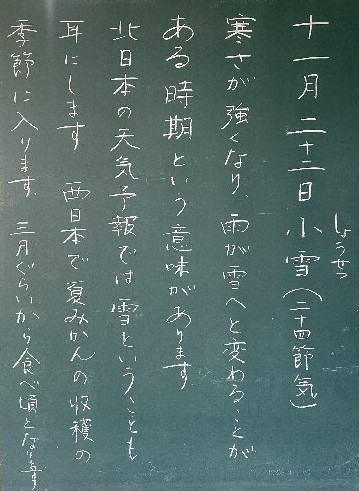 十一月二十二日 小雪（二十四節気）
しょうせつ
寒さが強くなり、雨が雪へと変わることが
ある時期という意味があります
北日本の天気予報では雪ということも
耳にします 西日本で夏みかんの収穫の
季節に入ります、三月ぐらいから食べ頃となります